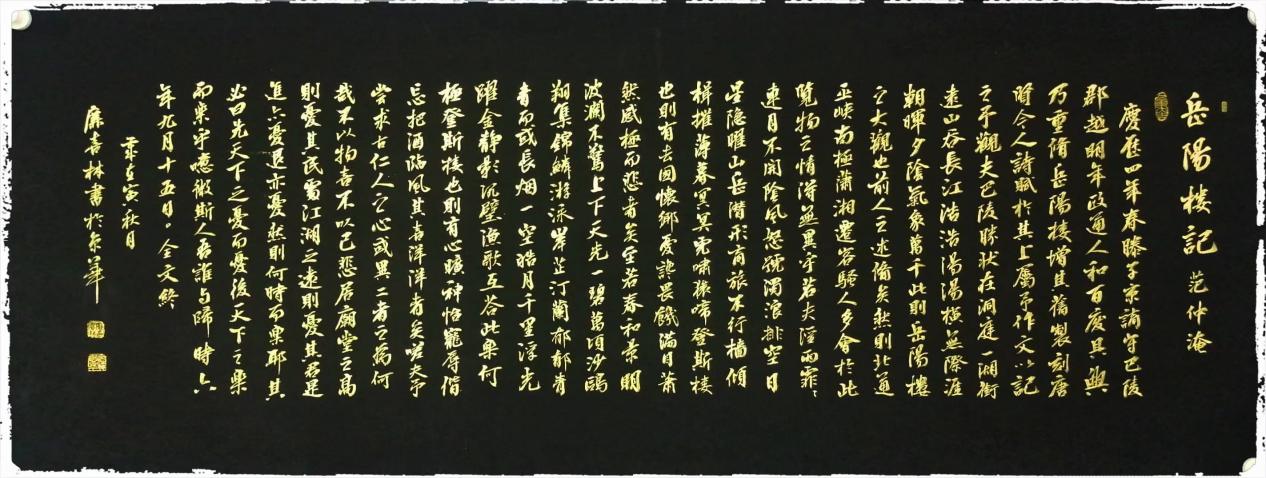 岳陽楼記 范仲淹
慶歷四年春滕子京謫守巴陵
郡越明年政通人和百廢具興
乃重脩岳陽樓增其舊製刻唐
賢今人詩賦於其上屬予作文以記
之予觀夫巴陵勝狀在洞庭一湖銜
遠山吞長江浩浩湯湯橫無際涯
朝暉夕陰氣象萬千此則岳陽樓
之大觀也前人之述備矣然則北通
巫峽南極瀟湘遷客騷人多會於此
覽物之情得無異乎若夫淫雨霏霏
連月不開陰風怒號濁浪排空日
星隱曜山岳潛形商旅不行檣傾
楫摧薄暮冥冥虎嘯猿啼登斯楼
也則有去國懷鄉憂讒畏饑滿目蕭
然感極而悲者矣至若春和景明
波瀾不驚上下天光一碧萬頃沙鷗
翔集錦鱗游泳岸芷汀蘭郁郁青
青而或長烟一空皓月千里浮光
躍金静影沉璧漁歌互答此樂何
極登斯楼也則有心曠神怡寵辱偕
忘把酒臨風其喜洋洋者矣嗟夫予
嘗求古仁人之心或異二者之為何
哉不以物喜不以己悲居廟堂之高
則憂其民處江湖之遠則憂其君是
進亦憂退亦憂然則何時而樂耶其
必曰先天下之憂而憂後天下之樂
而樂乎噫微斯人吾誰與歸時六
年九月十五日。全文終
寅秋月
喜林書於京華